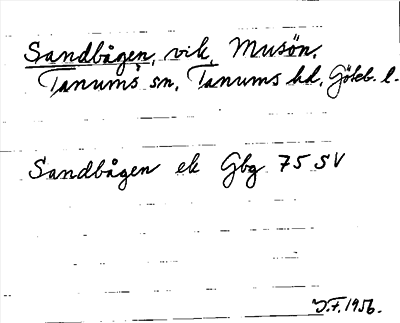 Sandbågen, vik, Musön,
Tanums sn, Tanums hd, Göteb. l.
Sandbågen ek Gbg 75 SV
J.F. 1956.